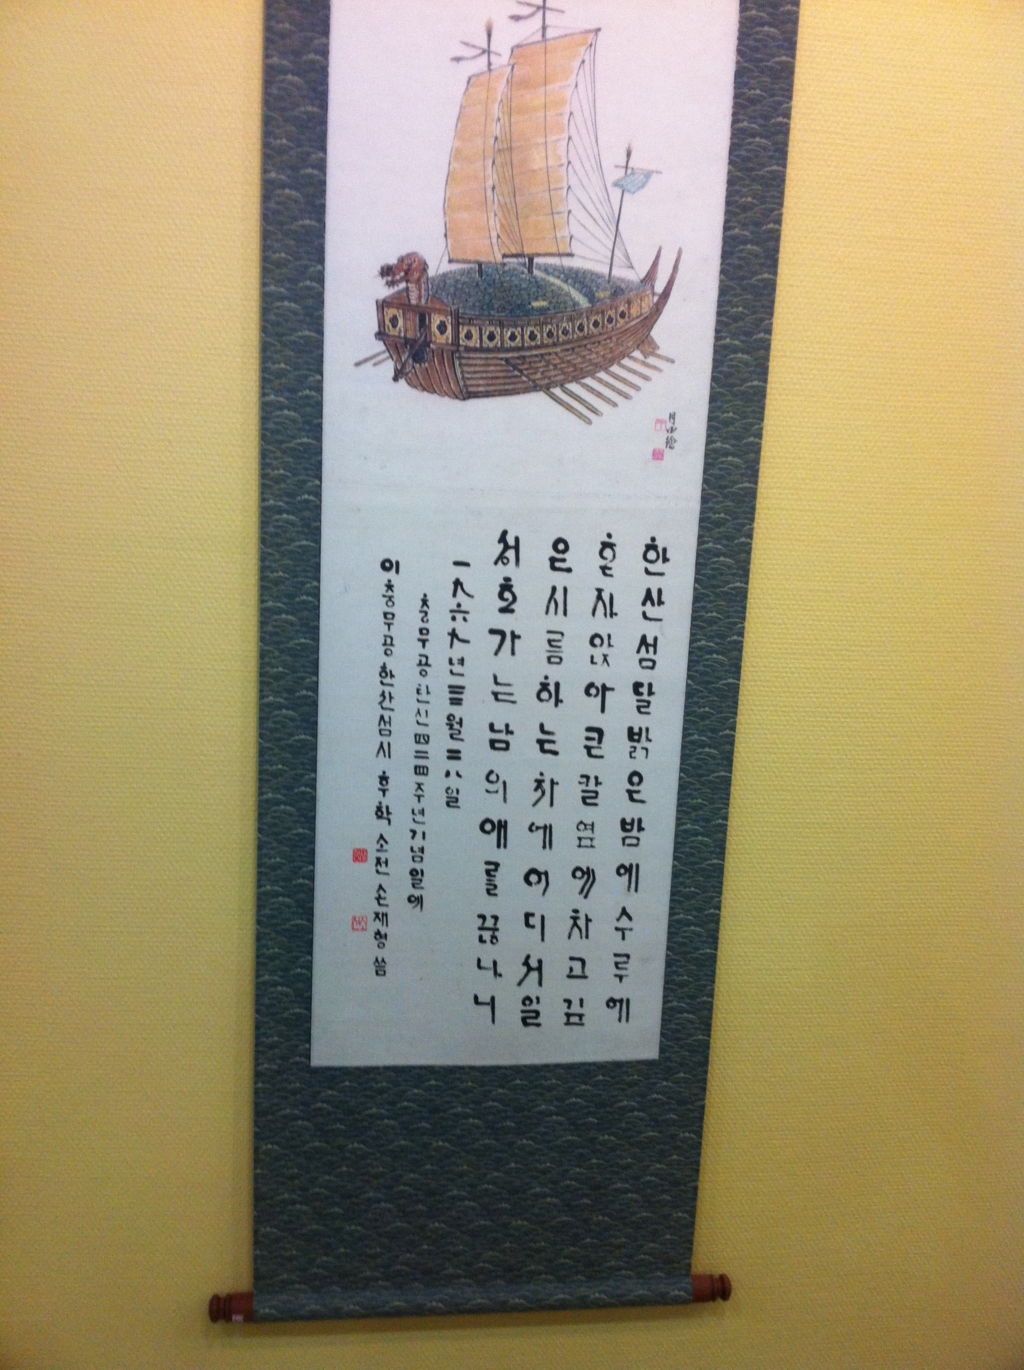 月田繪
한산섬달밝은밤에수루에
혼자앉아큰칼옆에차고깊
은시름하는차에어디서일
성호가는남의애를끊나니
一九六九년亖월二八일
충무공탄신四二四주년기념일에
이충무공한산섬시 후학 소전 손재형 씀